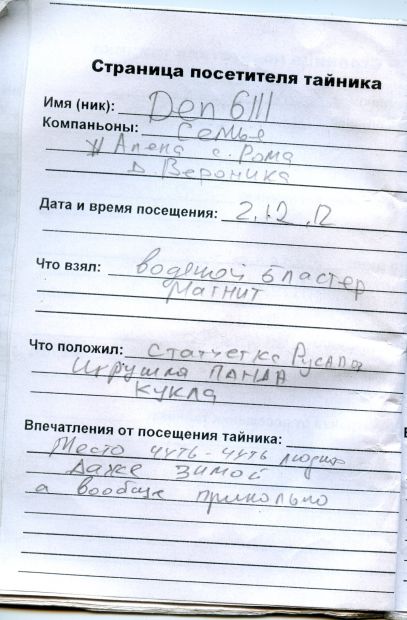 Страница посетителя тайника
Имя (ник): Den 6111
Компаньоны: Семья
Алена с. Рома
д. Вероника
Дата и время посещения: 2.12.12
Что взял: водяной бластер
магнит
Что положил: статуетка Русалка
Игрушка ПАНДА
кукла
Впечатления от посещения тайника:
Место чуть-чуть людно
Даже зимой
а вообще прикольно